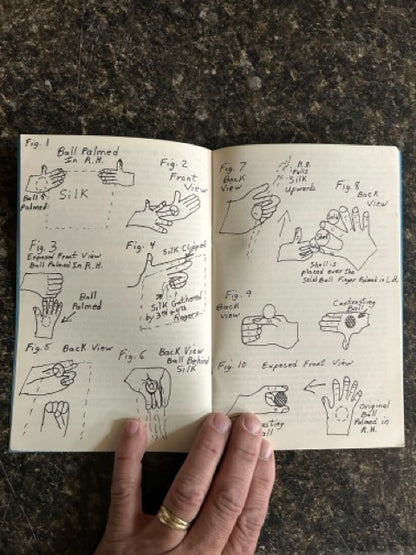 Fig. 1
Ball Palmed
In R.H.
Ball
Palmed
Silk
Fig. 2
Front
View
Fig. 3
Exposed Front View
Ball Palmed In R.H.
Ball
Palmed
Fig. 4
Silk Clipped
Silk Gathered
by 3rd & 4th
Fingers
Fig. 5
Back View
Fig. 6
Back View
Ball Behind
Silk
Fig. 7
Back
View
R.H.
Pulls
Silk
Upwards
Fig. 8
Back
View
Shell is
placed over the
Solid Ball Finger Palmed in L.H.
Fig. 9
Back
View
Contrasting
Ball
Fig. 10
Exposed Front View
Original
Ball
Palmed in
R.H.